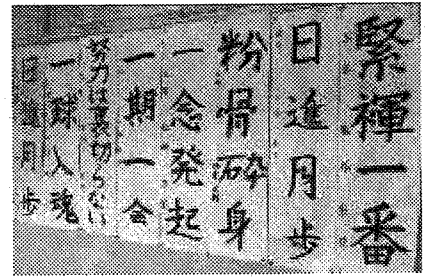 緊褌一番
日進月歩
粉骨砕身
一念発起
一期一会
努力は裏切らない
一球入魂
日進月歩